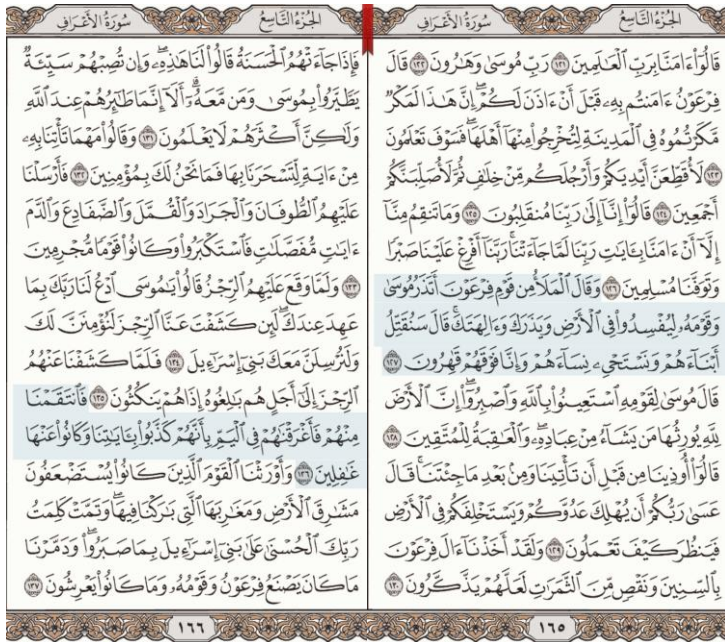 سُورَةُ الْأَعْرَافِ الجُزْءُ التَّاسِعُ
قَالُوٓا۟ ءَامَنَّا بِرَبِّ ٱلْعَٰلَمِينَ ١٢١ رَبِّ مُوسَىٰ وَهَٰرُونَ ١٢٢ قَالَ
فِرْعَوْنُ ءَامَنتُم بِهِۦ قَبْلَ أَنْ ءَاذَنَ لَكُمْ ۖ إِنَّ هَٰذَا لَمَكْرٌ
مَّكَرْتُمُوهُ فِى ٱلْمَدِينَةِ لِتُخْرِجُوا۟ مِنْهَآ أَهْلَهَا ۖ فَسَوْفَ تَعْلَمُونَ
١٢٣ لَأُقَطِّعَنَّ أَيْدِيَكُمْ وَأَرْجُلَكُم مِّنْ خِلَٰفٍ ثُمَّ لَأُصَلِّبَنَّكُمْ
أَجْمَعِينَ ١٢٤ قَالُوٓا۟ إِنَّآ إِلَىٰ رَبِّنَا مُنقَلِبُونَ ١٢٥ وَمَا تَنقِمُ مِنَّآ
إِلَّآ أَنْ ءَامَنَّا بِـَٔايَٰتِ رَبِّنَا لَمَّا جَآءَتْنَا ۚ رَبَّنَآ أَفْرِغْ عَلَيْنَا صَبْرًا
وَتَوَفَّنَا مُسْلِمِينَ ١٢٦ وَقَالَ ٱلْمَلَأُ مِن قَوْمِ فِرْعَوْنَ أَتَذَرُ مُوسَىٰ
وَقَوْمَهُۥ لِيُفْسِدُوا۟ فِى ٱلْأَرْضِ وَيَذَرَكَ وَءَالِهَتَكَ ۚ قَالَ سَنُقَتِّلُ
أَبْنَآءَهُمْ وَنَسْتَحْىِۦ نِسَآءَهُمْ وَإِنَّا فَوْقَهُمْ قَٰهِرُونَ ١٢٧
قَالَ مُوسَىٰ لِقَوْمِهِ ٱسْتَعِينُوا۟ بِٱللَّهِ وَٱصْبِرُوٓا۟ ۖ إِنَّ ٱلْأَرْضَ
لِلَّهِ يُورِثُهَا مَن يَشَآءُ مِنْ عِبَادِهِۦ ۖ وَٱلْعَٰقِبَةُ لِلْمُتَّقِينَ ١٢٨
قَالُوٓا۟ أُوذِينَا مِن قَبْلِ أَن تَأْتِيَنَا وَمِنۢ بَعْدِ مَا جِئْتَنَا ۚ قَالَ
عَسَىٰ رَبُّكُمْ أَن يُهْلِكَ عَدُوَّكُمْ وَيَسْتَخْلِفَكُمْ فِى ٱلْأَرْضِ
فَيَنظُرَ كَيْفَ تَعْمَلُونَ ١٢٩ وَلَقَدْ أَخَذْنَآ ءَالَ فِرْعَوْنَ
بِٱلسِّنِينَ وَنَقْصٍ مِّنَ ٱلثَّمَرَٰتِ لَعَلَّهُمْ يَذَّكَّرُونَ ١٣٠
١٦٥
سُورَةُ الْأَعْرَافِ الجُزْءُ التَّاسِعُ
فَإِذَا جَآءَتْهُمُ ٱلْحَسَنَةُ قَالُوا۟ لَنَا هَٰذِهِۦ ۖ وَإِن تُصِبْهُمْ سَيِّئَةٌ
يَطَّيَّرُوا۟ بِمُوسَىٰ وَمَن مَّعَهُۥٓ ۗ أَلَآ إِنَّمَا طَٰٓئِرُهُمْ عِندَ ٱللَّهِ
وَلَٰكِنَّ أَكْثَرَهُمْ لَا يَعْلَمُونَ ١٣١ وَقَالُوا۟ مَهْمَا تَأْتِنَا بِهِۦ
مِنْ ءَايَةٍ لِّتَسْحَرَنَا بِهَا فَمَا نَحْنُ لَكَ بِمُؤْمِنِينَ ١٣٢ فَأَرْسَلْنَا
عَلَيْهِمُ ٱلطُّوفَانَ وَٱلْجَرَادَ وَٱلْقُمَّلَ وَٱلضَّفَادِعَ وَٱلدَّمَ
ءَايَٰتٍ مُّفَصَّلَٰتٍ فَٱسْتَكْبَرُوا۟ وَكَانُوا۟ قَوْمًا مُّجْرِمِينَ
١٣٣ وَلَمَّا وَقَعَ عَلَيْهِمُ ٱلرِّجْزُ قَالُوا۟ يَٰمُوسَى ٱدْعُ لَنَا رَبَّكَ بِمَا
عَهِدَ عِندَكَ ۖ لَئِن كَشَفْتَ عَنَّا ٱلرِّجْزَ لَنُؤْمِنَنَّ لَكَ
وَلَنُرْسِلَنَّ مَعَكَ بَنِىٓ إِسْرَٰٓءِيلَ ١٣٤ فَلَمَّا كَشَفْنَا عَنْهُمُ
ٱلرِّجْزَ إِلَىٰٓ أَجَلٍ هُم بَٰلِغُوهُ إِذَا هُمْ يَنكُثُونَ ١٣٥ فَٱنتَقَمْنَا
مِنْهُمْ فَأَغْرَقْنَٰهُمْ فِى ٱلْيَمِّ بِأَنَّهُمْ كَذَّبُوا۟ بِـَٔايَٰتِنَا وَكَانُوا۟ عَنْهَا
غَٰفِلِينَ ١٣٦ وَأَوْرَثْنَا ٱلْقَوْمَ ٱلَّذِينَ كَانُوا۟ يُسْتَضْعَفُونَ
مَشَٰرِقَ ٱلْأَرْضِ وَمَغَٰرِبَهَا ٱلَّتِى بَٰرَكْنَا فِيهَا ۖ وَتَمَّتْ كَلِمَتُ
رَبِّكَ ٱلْحُسْنَىٰ عَلَىٰ بَنِىٓ إِسْرَٰٓءِيلَ بِمَا صَبَرُوا۟ ۖ وَدَمَّرْنَا
مَا كَانَ يَصْنَعُ فِرْعَوْنُ وَقَوْمُهُۥ وَمَا كَانُوا۟ يَعْرِشُونَ ١٣٧
١٦٦